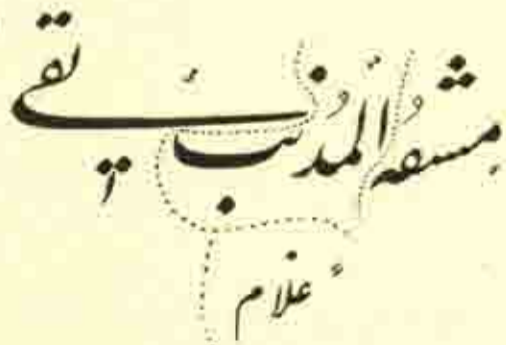 مشقه المذنب تقی
غلام